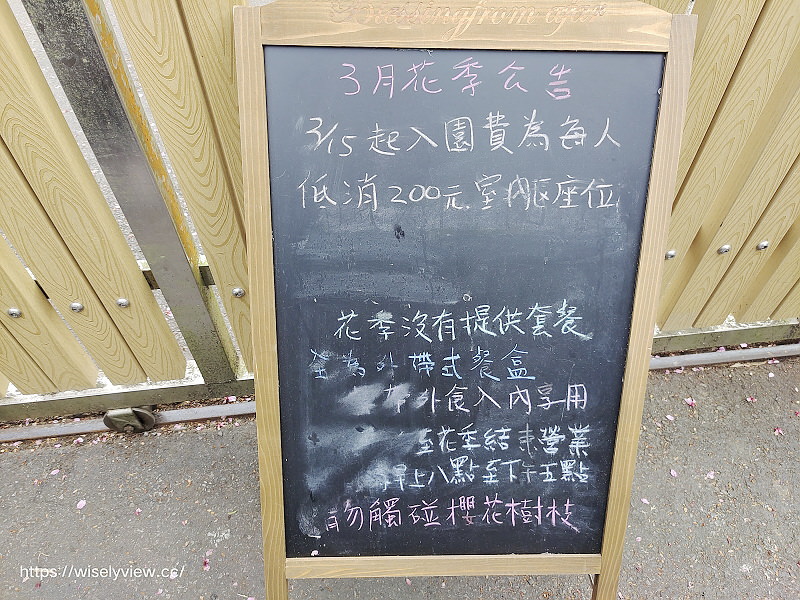 3月花季公告
3/15起入園費為每人
低消200元,室內區座位
花季沒有提供套餐
全為外帶式餐盒
外食入內享用
至花季結束營業
早上八點至下午五點
請勿觸碰櫻花樹枝
https://wiselyview.cc/